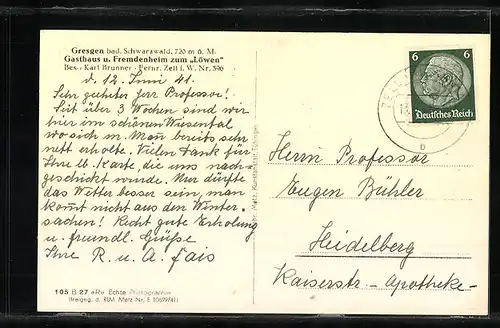 Gresgen bad. Schwarzwald, 720 m ü. M.
Gasthaus u. Fremdenheim zum „Löwen"
Bes.: Karl Brunner - Fernr. Zell i. W. Nr. 396
d. 12. Juni 41.
Sehr geehrter Herr Professor!
Seit über 3 Wochen sind wir
hier im schönen Wiesental
wo sich m. Mann bereits sehr
nett erholte. Vielen Dank für
Ihre lb. Karte, die uns nach-
geschickt wurde. Nur dürfte
das Wetter besser sein, man
kommt nicht aus den Winter-
sachen! Recht gute Erholung
u. freundl. Grüße
Ihre R. u. A. Fais
105 B 27 Echte Photographie
(Freigeg. d. RLM Metz Nr. E 10699/41)
6 6
Deutsches Reich
ZELL
b
Herrn Professor
Eugen Bühler
Heidelberg
Kaiserstr. - Apotheke -